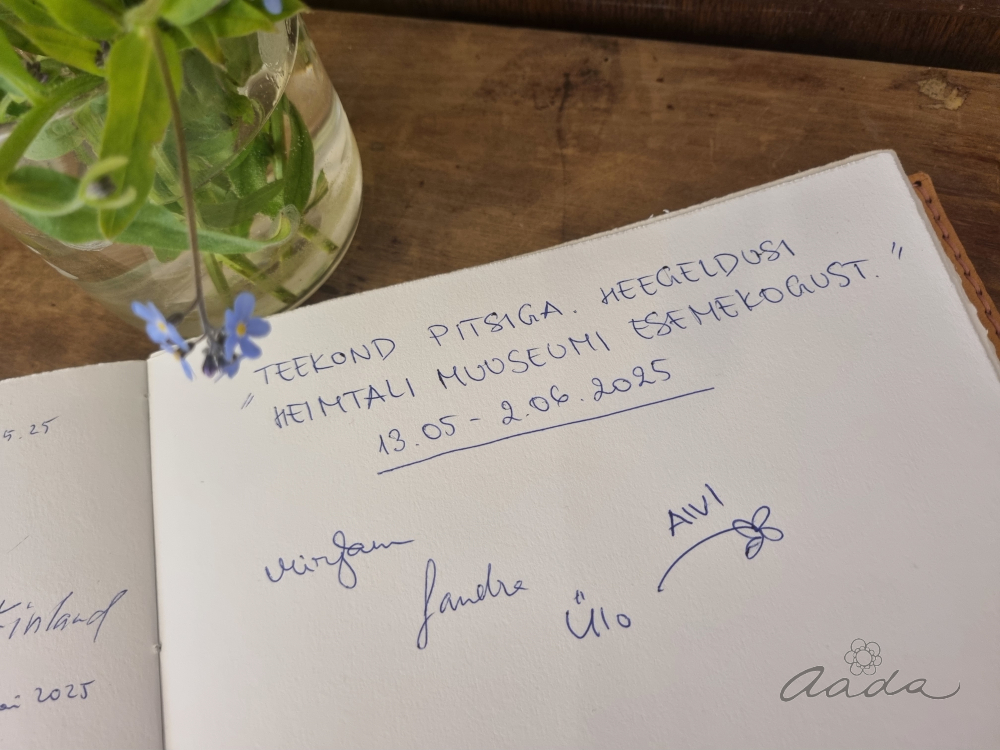 5.25
Finland
mai 2025
"TEEKOND PITSIGA. HEEGELDUSI
HEIMTALI MUUSEUMI ESEMEKOGUST."
13.05 - 2.06.2025
Mirjam
Sandra
Ülo
AIVI
aada